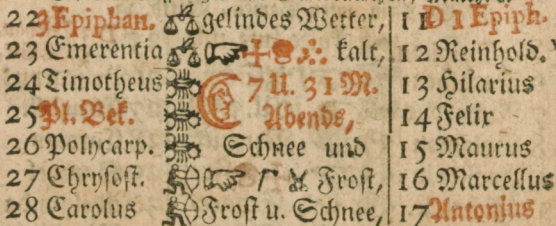 22 3 Epiphan. gelindes Wetter, 11 D 1 Epiph.
23 Emerentia kalt, 12 Reinhold.
24 Timotheus 7 U. 31 M. 13 Hilarius
25 Pl. Bek. Abends, 14 Felix
26 Polycarp. Schnee und 15 Maurus
27 Chrysost. Frost, 16 Marcellus
28 Carolus Frost u. Schnee, 17 Antonius